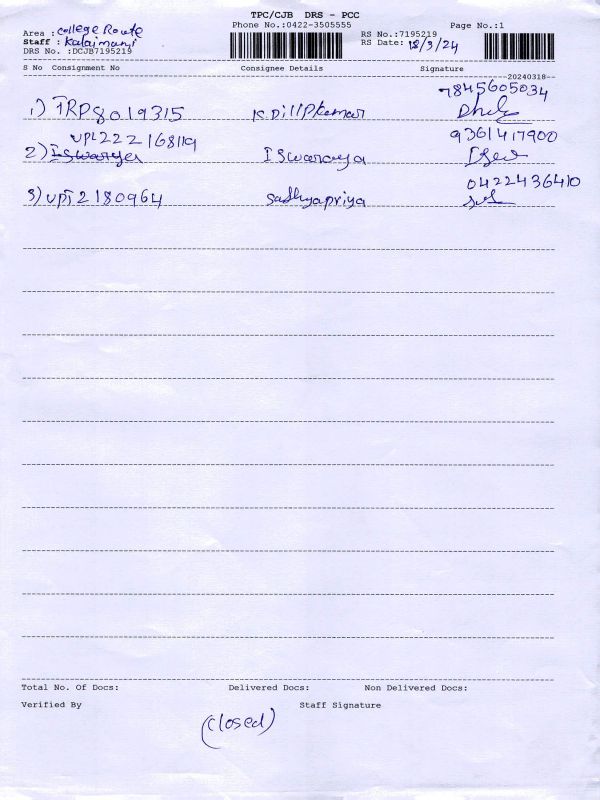 TPC/CJB DRS - PCC
Phone No.:0422-3505555
Page No.:1
Area : college Route
Staff : Kalaimani
DRS No. :DCJB7195219
RS No.:7195219
RS Date: 18/3/24
S No Consignment No Consignee Details Signature
20240318
7845605034
1) TRP8019315 K.Dillpkumar
UPL222168119 9361417900
2) Iswarya Iswarya
0422436410
3) UPT2180964 Sadhyapriya
Total No. Of Docs: Delivered Docs: Non Delivered Docs:
Verified By Staff Signature
(Closed)